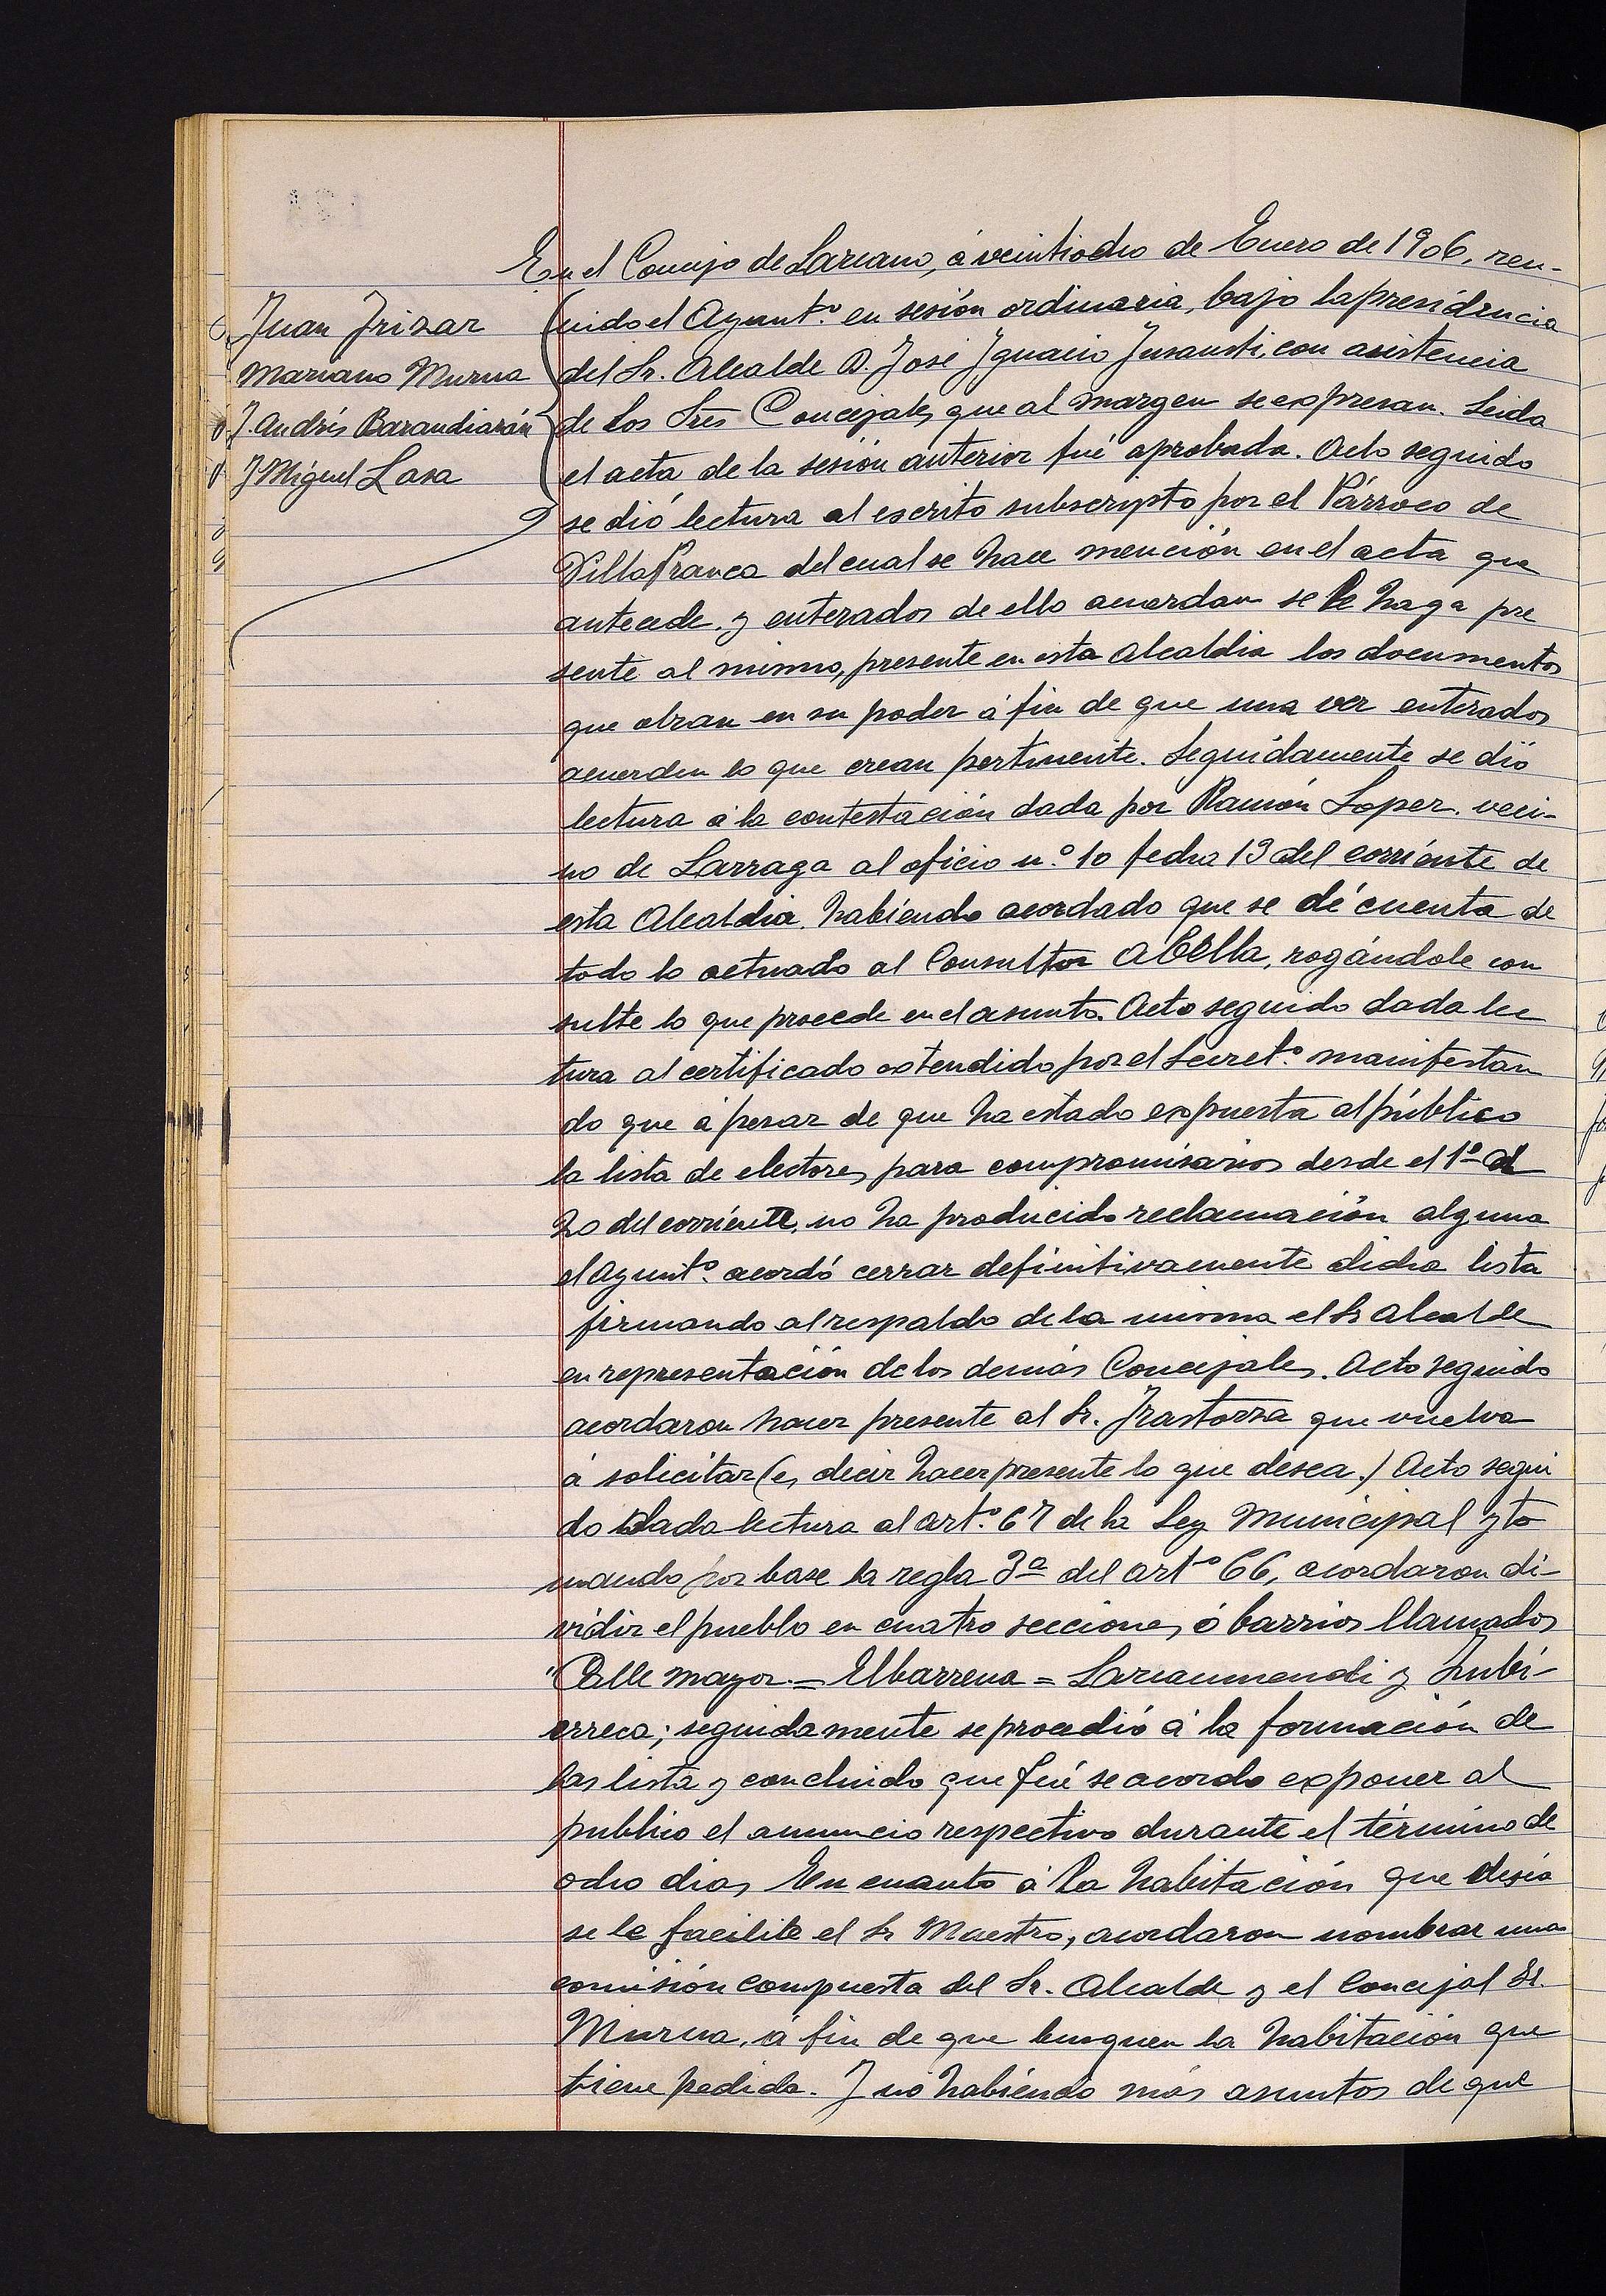 En el Concejo de Lazcano, á veintiocho de Enero de 1906, reu-
Juan Irizar
Mariano Murua
J. Andrés Barandiarán
J Miguel Lasa
nido el Ayunt.º en sesión ordinaria, bajo la presidencia
del Sr. Alcalde D. José Ignacio Insausti, con asistencia
de los Sres Concejales que al margen se expresan. Leida
el acta de la sesión anterior fué aprobada. Acto seguido
se dió lectura al escrito subscripto por el Párroco de
Villafranca del cual se hace mención en el acta que
antecede. y enterados de ello acuerdan se le haga pre
sente al mismo, presente en esta Alcaldia los documentos
que obran en su poder á fin de que una vez enterados
acuerden lo que crean pertinente. Seguidamente se dió
lectura á la contestación dada por Ramón Lopez. veci-
no de Larraga al oficio n.º 10 fecha 19 del corriente de
esta Alcaldia. habiendo acordado que se dé cuenta de
todo lo actuado al Consultor Abella, rogándole con
sulte lo que procede en el asunto. Acto seguido dada lec
tura al certificado extendido por el Secret.º manifestan
do que á pesar de que ha estado expuesta al público
la lista de electores para compromisarios desde el 1º al
20 del corriente, no ha producido reclamación alguna
el Ayunt.º acordó cerrar definitivamente dicha lista
firmando al respaldo de la misma el Sr Alcalde
en representación de los demás Concejales. Acto seguido
acordaron hacer presente al Sr. Irastorza que vuelva
á solicitar (es decir hacer presente lo que desea.) Acto segui
do dada lectura al art.º 67 de la Ley Municipal y to
mando por base la regla 3ª del artº 66, acordaron di-
vidir el pueblo en cuatro secciones ó barrios llamados
"Calle mayor. = Elbarrena = Lazcaumendi y Zubi-
erreca; seguidamente se procedió á la formación de
las listas y concluido que fué se acordo exponer al
publico el anuncio respectivo durante el término de
ocho dias En cuanto á la habitación que desea
se le facilite el Sr Maestro, acordaron nombrar una
comisión compuesta del Sr. Alcalde y el Concejal Sr.
Murua, á fin de que busquen la habitación que
tiene pedida. Y no habiendo más asuntos de que